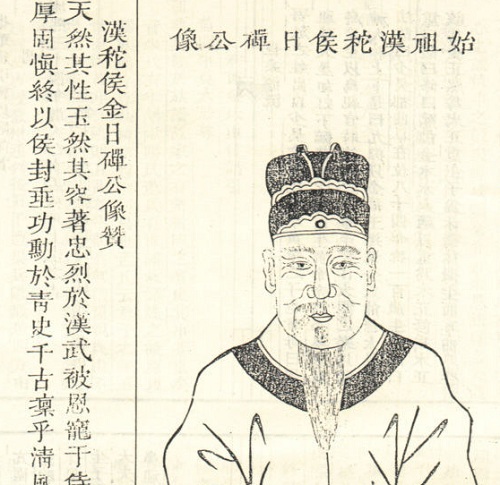 始祖漢秺侯日磾公像
漢秺侯金日磾公像贊
天然其性玉然其容著忠烈於漢武被恩寵于侍
厚固慎終以侯封垂功勳於靑史千古稟乎淸風